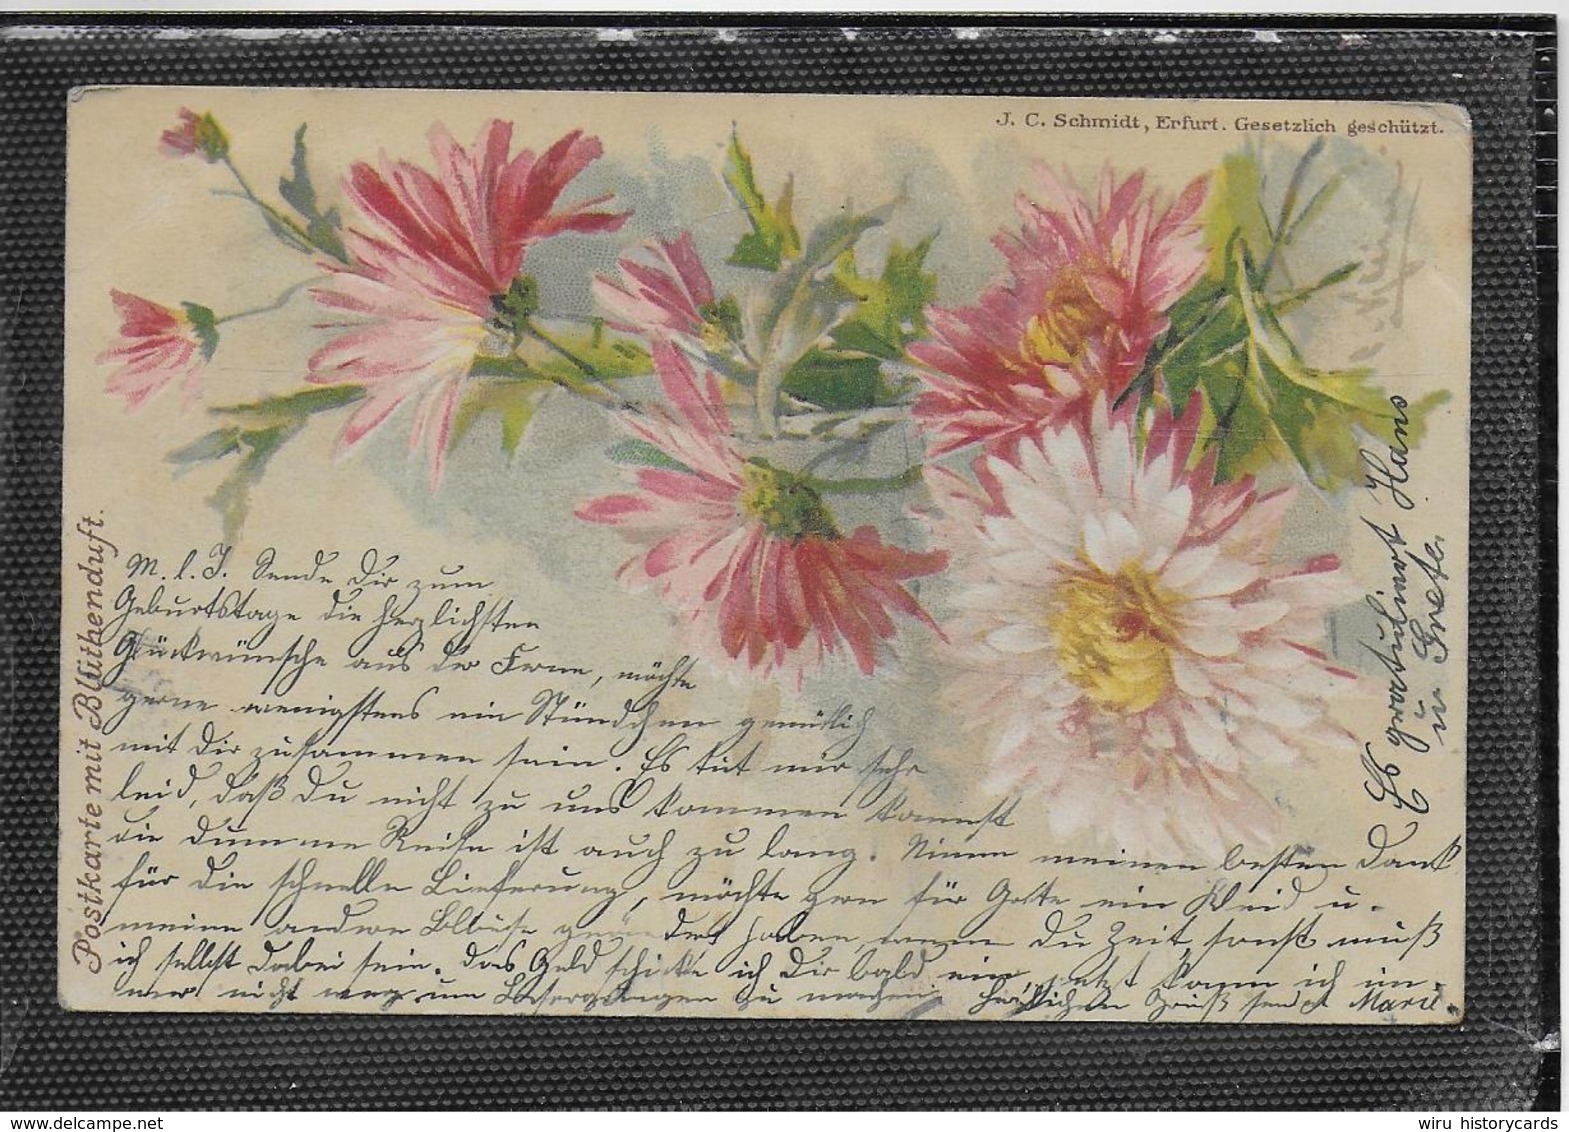 J. C. Schmidt, Erfurt. Gesetzlich geschützt.
Postkarte mit Blüthenduft.
M. l. J. Sende Dir zum
Geburtstage die herzlichsten
Glückwünsche aus der Ferne, möchte
gerne wenigstens ein Stündchen gemütlich
mit Dir zusammen sein. Es tut mir sehr
leid, daß Du nicht zu uns kommen kannst
die dumme Reise ist auch zu lang. Nimm meinen besten Dank
für die schnelle Lieferung, möchte gern für Grete ein Kleid u.
meine andere Blouse geändert haben, wenn Du Zeit, sonst muß
ich selbst dabei sein. Das Geld schicke ich Dir bald ein, jetzt kann ich im-
mer nicht weg um Besorgungen zu machen. Herzlichen Gruß sendet Marie.
Es gratuliert Hans
u. Grete.
wiru historycards
www.delcampe.net